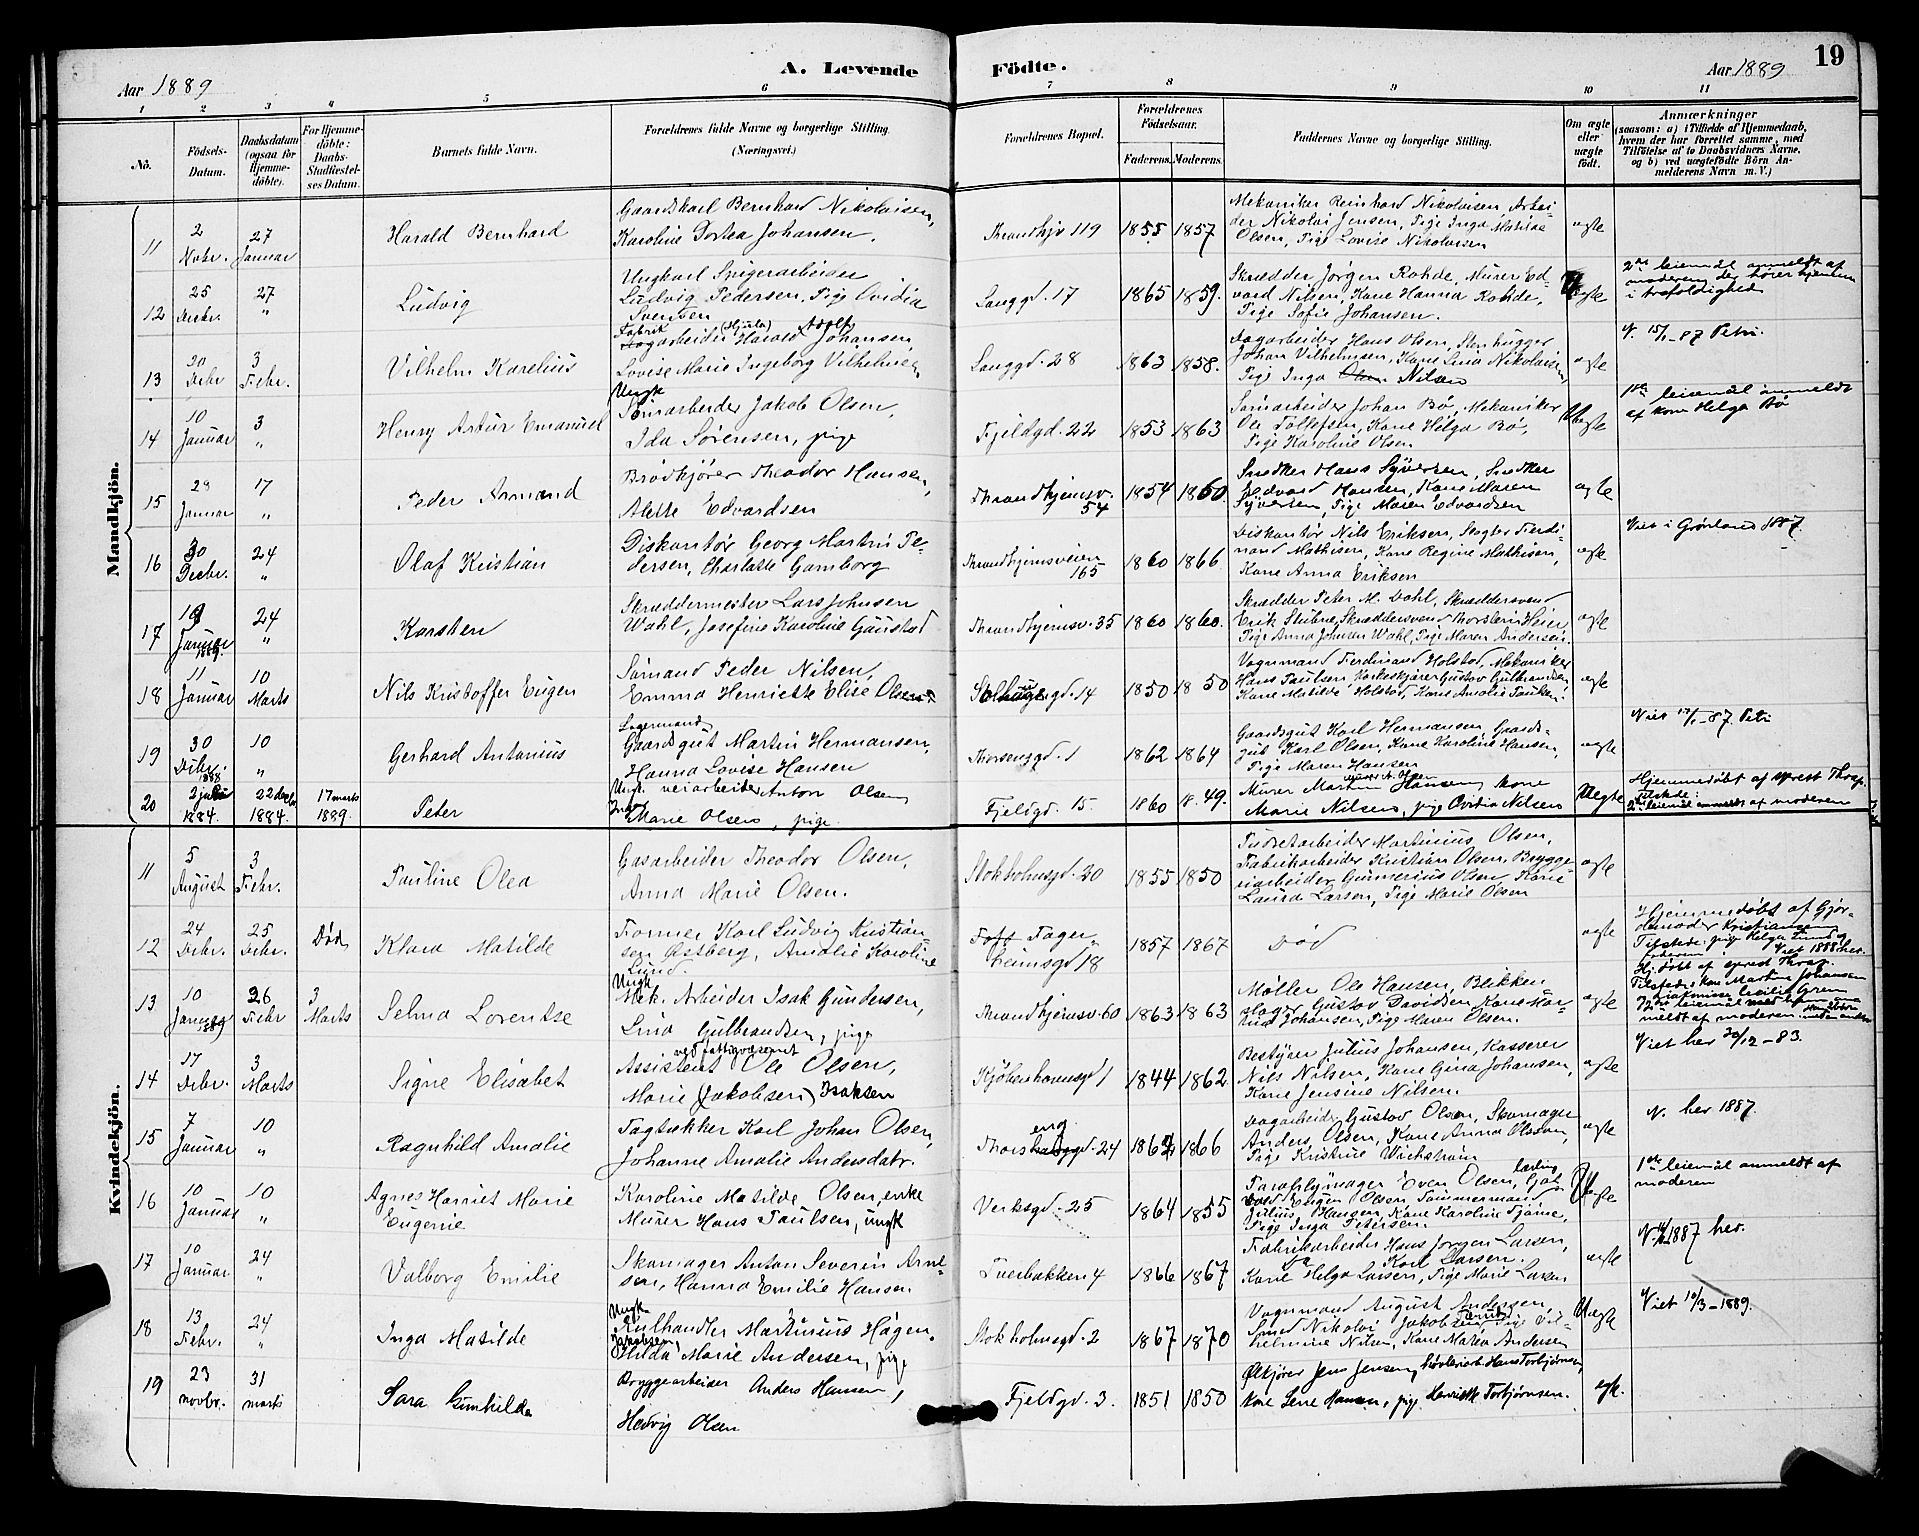 Aar 1889
A. Levende
Födte.
Aar 1889
19
1 2 3 4 5 6 7 8 9 10 11
No.
Födsels-
Datum.
Daabsdatum
(ogsaa for
Hjemme-
döbte).
For Hjemme-
döbte:
Daabs-
Stadfæstel-
ses Datum.
Barnets fulde Navn.
Forældrenes fulde Navne og borgerlige Stilling.
(Næringsvei.)
Forældrenes Bopæl.
Forældrenes
Födselsaar.
Faderens.
Moderens.
Faddernes Navne og borgerlige Stilling.
Om ægte
eller
uægte
födt.
Anmærkninger
(saasom: a) i Tilfælde af Hjemmedaab,
hvem der har forrettet samme, med
Tilföielse af to Daabsvidners Navne,
og b) ved uægtefödte Börn An-
melderens Navn m. V.)
Mandkjön.
11
2 Novbr.
27 Januar
Harald Bernhard
Gaardskarl Bernhard Nikolaisen,
Karoline Dortea Johansen.
Throndhjv 119
1855 1857
Mekaniker Reinhard Nikolaisen, Arbei-
der Nikolai Jensen, Pige Inga Matilde
Olsen, Pige Lovise Nikolaisen
ægte
12
25 Decbr.
27 "
Ludvig
Ungkarl Spigerarbeider
Ludvig Pedersen, Pige Ovidia
Svensen
Langgd. 17
1865 1859.
Skrædder Jörgen Rohde, Murer Ed-
vard Nilsen, Kone Hanna Rohde,
Pige Sofie Johansen.
Uægte
2det leiemaal anmeldt af
moderen, der hörer hjemme
i trefoldighed
13
20 Decbr
3 Febr.
Vilhelm Karelius
Fabrik (Hjula) Adolf
arbeider Harald Johansen,
Lovise Marie Ingeborg Vilhelmsen
Langgd. 28
1863 1858.
Dagarbeider Hans Olsen, Stenhugger
Johan Vilhelmsen, Kone Lina Nikolaisen,
Pige Inga Olsen Nilsen
ægte
V. 15/1-87 Petri.
14
10 Januar
3 "
Henry Artur Emanuel
Ungk
arbeider Jakob Olsen,
Ida Sörensen, pige
Fjeldgd. 22
1853 1863
arbeider Johan Bö, Mekaniker
Ole Tollefsen, Kone Helga Bö,
Pige Karoline Olsen
Uægte
1ste leiemaal anmeldt
af kone Helga Bö
15
28 Januar
17 "
Peder Armand
Brödkjörer Theodor Hansen,
Alette Edvardsen
Throndhjemsv. 54
1854 1860
Snedker Hans Syversen, Snedker
Edvard Hansen, Kone Maren
Syversen, Pige Maren Edvardsen
ægte
16
30 Decbr.
24 "
Olaf Kristian
Diskontör Georg Martin Pe-
dersen, Charlotte Gamborg
Throndhjemsveien 165
1860 1866
Diskontör Nils Eriksen, Slagter Ferdi-
nand Mathisen, Kone Regine Mathisen,
Kone Anna Eriksen
ægte
Viet i Grönland 1887.
17
19 Januar 1889.
24 "
Karsten
Skræddermester Lars Johnsen
Wahl, Josefine Karoline Gaustad
Throndhjemsv. 35
1860 1860.
Skrædder Peter M. Dahl, Skræddersvend
Erik Stubne, Skræddersvend Thorstein Heier
Pige Anna Johnsen Wahl, Pige Maren Andersen.
ægte
18
11 Januar
10 Marts
Nils Kristoffer Eugen
Sömand Peder Nilsen,
Emma Henriette Elise Olsen
gd. 14
1850 1850
Vognmand Ferdinand Holstad, Mekaniker
Hans Paulsen, Gustav Gulbrandsen,
Kone Matilde Holstad, Kone Amalie Paulsen.
ægte
19
30 Decbr. 1888
10 "
Gerhard Antonius
Lagermand
Gaardsgut Martin Hermansen,
Hanna Lovise Hansen
Thorsensgd. 1
1862 1864
Gaardsgut Karl Hermansen, Gaards-
gut Karl Olsen, Kone Karoline Hansen,
Pige Maren Hansen
ægte
Viet 17/1-87. Petri
20
2 juli 1884.
22 decbr 1884.
17 marts 1889.
Peter
Ungk. veiarbeider Anton Olsen
Inga
Marie Olsen, pige.
Fjeldgd. 15
1860 18.49.
Murer Martin Hansen, kone
Marie Nilsen, pige Ovidia Nilsen
Uægte
Hjemmedöbt af sprest Thrap.
Tilstede:
2det leiemål anmeldt af moderen
Kvindekjön.
11
5 August
3 Febr.
Pauline Olea
Gasarbeider Theodor Olsen,
Anna Marie Olsen.
Stokholmsgd. 20
1855 1850
Pudretarbeider Martinius Olsen,
Fabrikarbeider Kristian Olsen, Brygge-
riarbeider Gunnerius Olsen Kone
Laura Larsen, Pige Marie Olsen
ægte
12
24 Decbr.
25 Decbr.
Död
Klara Matilde
Former Karl Ludvig Kristian-
sen Östberg, Amalie Karoline
Lund.
Fager-
heimsgd 18
1857 1867
Död
ægte
Hjemmedöbt af Gjor-
demoder Kristiansen
Tilstede: pige Helga Lund og
faderen. Viet 1888 her.
13
10 Januar 1889
26 Febr
3 Marts
Selma Lorentse
Ungk
Mek. Arbeider Isak Gundersen,
Lina Gulbrandsen, pige
Throndhjemsv. 60
1863 1863
Möller Ole Hansen, Blikken-
slager Gustav Davidsen Kone Mar-
tine Johansen, Pige Maren Olsen.
ægte
Hj. döbt af sprest Thrap.
Tilstede: kone Martine Johansen
14
17 Decbr.
3 Marts
Signe Elisabet
ved fattigvæsenet
Assistent Ole Olsen,
Marie (Jakobsen) Isaksen
Kjöbenhavnsgd 1
1844 1862
Bestyrer Julius Johansen, Kasserer
Nils Nilsen, Kone Gina Johansen,
Kone Jensine Nilsen.
ægte
Viet her 30/12-83.
15
7 Januar
10 "
Ragnhild Amalie
Tagtækker Karl Johan Olsen,
Johanne Amalie Andersdatr.
eng
Thorshauggd. 24
1862 1866
Dagarbeider Gustav Olsen, Skomager
Anders Olsen, Kone Anna Olsson,
Pige Kristine Wichström
ægte
V. her 1887.
16
10 Januar
10 "
Agnes Harriet Marie
Eugenie
Karoline Matilde Olsen, enke
Murer Hans Paulsen, ungk
Verksgd. 25
1864 1855
Paraplymager Even Olsen,
Eugen Olsen, Tömmermand
Julius Hansen, Kone Karoline
Pige Inga Petersen.
Uægte
1ste leiemål anmeldt af
moderen
17
10 Januar
24 "
Valborg Emilie
Skomager Anton Severin Arne-
sen, Hanna Emilie Hansen
Tverbakken 4
1866 1867
Fabrikarbeider Hans Jörgen Larsen,
Do Karl Larsen.
Kone Helga Larsen, Pige Marie Larsen
ægte
V. 1887 her.
18
13 Febr.
24 "
Inga Matilde
Ungk.
Kulhandler Martinius Hagen.
Hilda Marie Andersen, pige
Stokholmsgd. 2
1867 1870
Vognmand August Andersen,
Smed Nikolai Jakobsen, Pige Vil-
helmine Nilsen, Kone Maren Andersen
Uægte
Viet 10/3-1889.
19
23 novbr.
31 marts
Sara Gunhilda
Bryggearbeider Anders Hansen,
Hedvig Olsen
Fjeldgd. 3.
1851 1850
Ölkjörer Jens Jensen, Hans Torbjörnsen,
kone Lene Hansen, pige Henriette Torbjörnsen.
ægte.